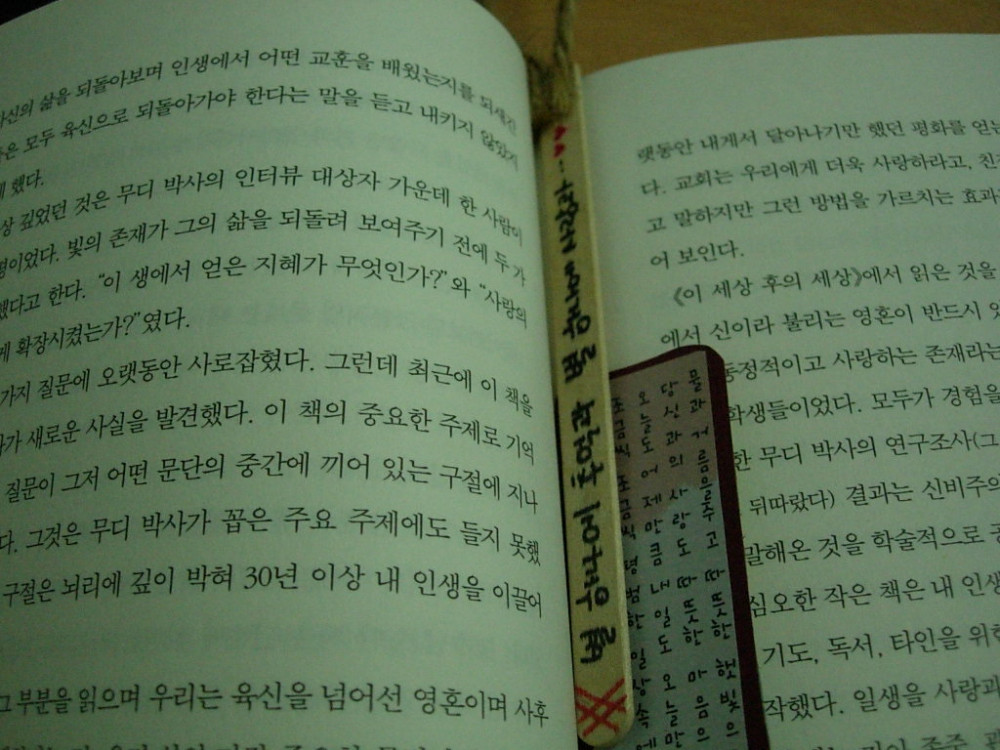 자신의 삶을 되돌아보며 인생에서 어떤 교훈을 배웠는지를 되새긴
은 모두 육신으로 되돌아가야 한다는 말을 듣고 내키지 않았지
했다.
상 깊었던 것은 무디 박사의 인터뷰 대상자 가운데 한 사람이
이었다. 빛의 존재가 그의 삶을 되돌려 보여주기 전에 두 가
했다고 한다. “이 생에서 얻은 지혜가 무엇인가?”와 “사랑의
게 확장시켰는가?”였다.
가지 질문에 오랫동안 사로잡혔다. 그런데 최근에 이 책을
가 새로운 사실을 발견했다. 이 책의 중요한 주제로 기억
질문이 그저 어떤 문단의 중간에 끼어 있는 구절에 지나
다. 그것은 무디 박사가 꼽은 주요 주제에도 들지 못했
구절은 뇌리에 깊이 박혀 30년 이상 내 인생을 이끌어
그 부분을 읽으며 우리는 육신을 넘어선 영혼이며 사후
별 하나에 추억과 별 하나에 사랑과...^^
물과 거름을 주고 따뜻한 햇빛의
당신과의 사랑도 따뜻한 마음의
오늘도 어제만큼 내일도 오늘만
조금씩 조금씩 평범한 일상 속에
랫동안 내게서 달아나기만 했던 평화를 얻는
다. 교회는 우리에게 더욱 사랑하라고, 친
고 말하지만 그런 방법을 가르치는 효과
어 보인다.
《이 세상 후의 세상》에서 읽은 것을
에서 신이라 불리는 영혼이 반드시 있
동정적이고 사랑하는 존재라는
학생들이었다. 모두가 경험을
한 무디 박사의 연구조사(그
뒤따랐다) 결과는 신비주의
말해온 것을 학술적으로 공
심오한 작은 책은 내 인생
기도, 독서, 타인을 위한
작했다. 일생을 사랑과